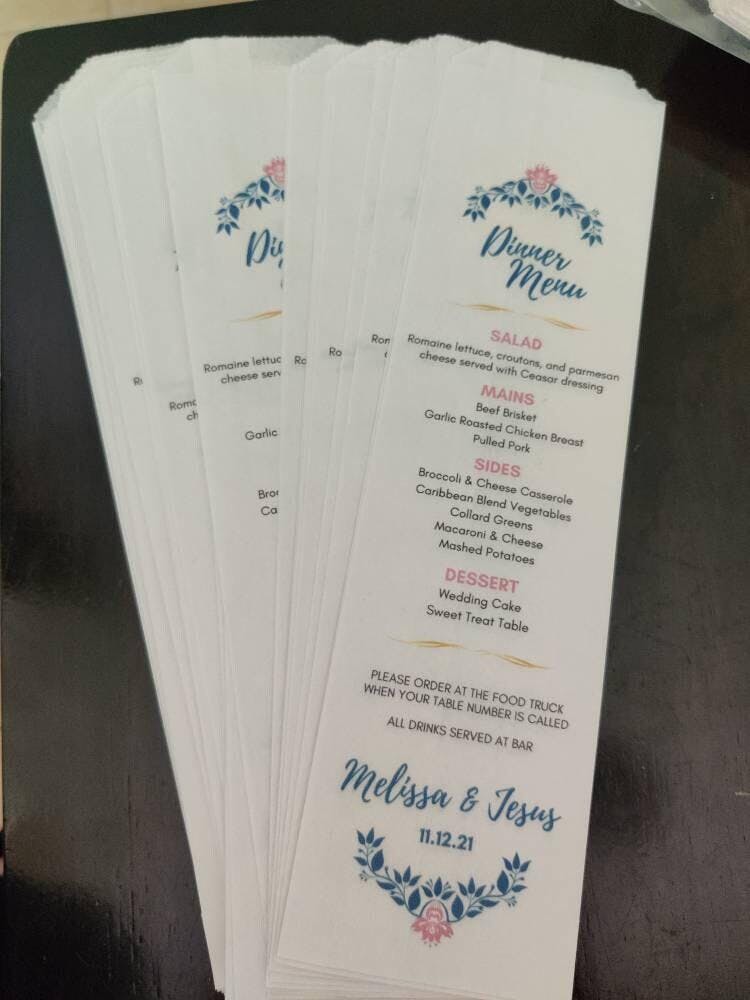 Dinner
Menu
SALAD
Romaine lettuce, croutons, and parmesan
cheese served with Ceasar dressing
MAINS
Beef Brisket
Garlic Roasted Chicken Breast
Pulled Pork
SIDES
Broccoli & Cheese Casserole
Caribbean Blend Vegetables
Collard Greens
Macaroni & Cheese
Mashed Potatoes
DESSERT
Wedding Cake
Sweet Treat Table
PLEASE ORDER AT THE FOOD TRUCK
WHEN YOUR TABLE NUMBER IS CALLED
ALL DRINKS SERVED AT BAR
Melissa & Jesus
11.12.21
Romaine
cheese
Garlic